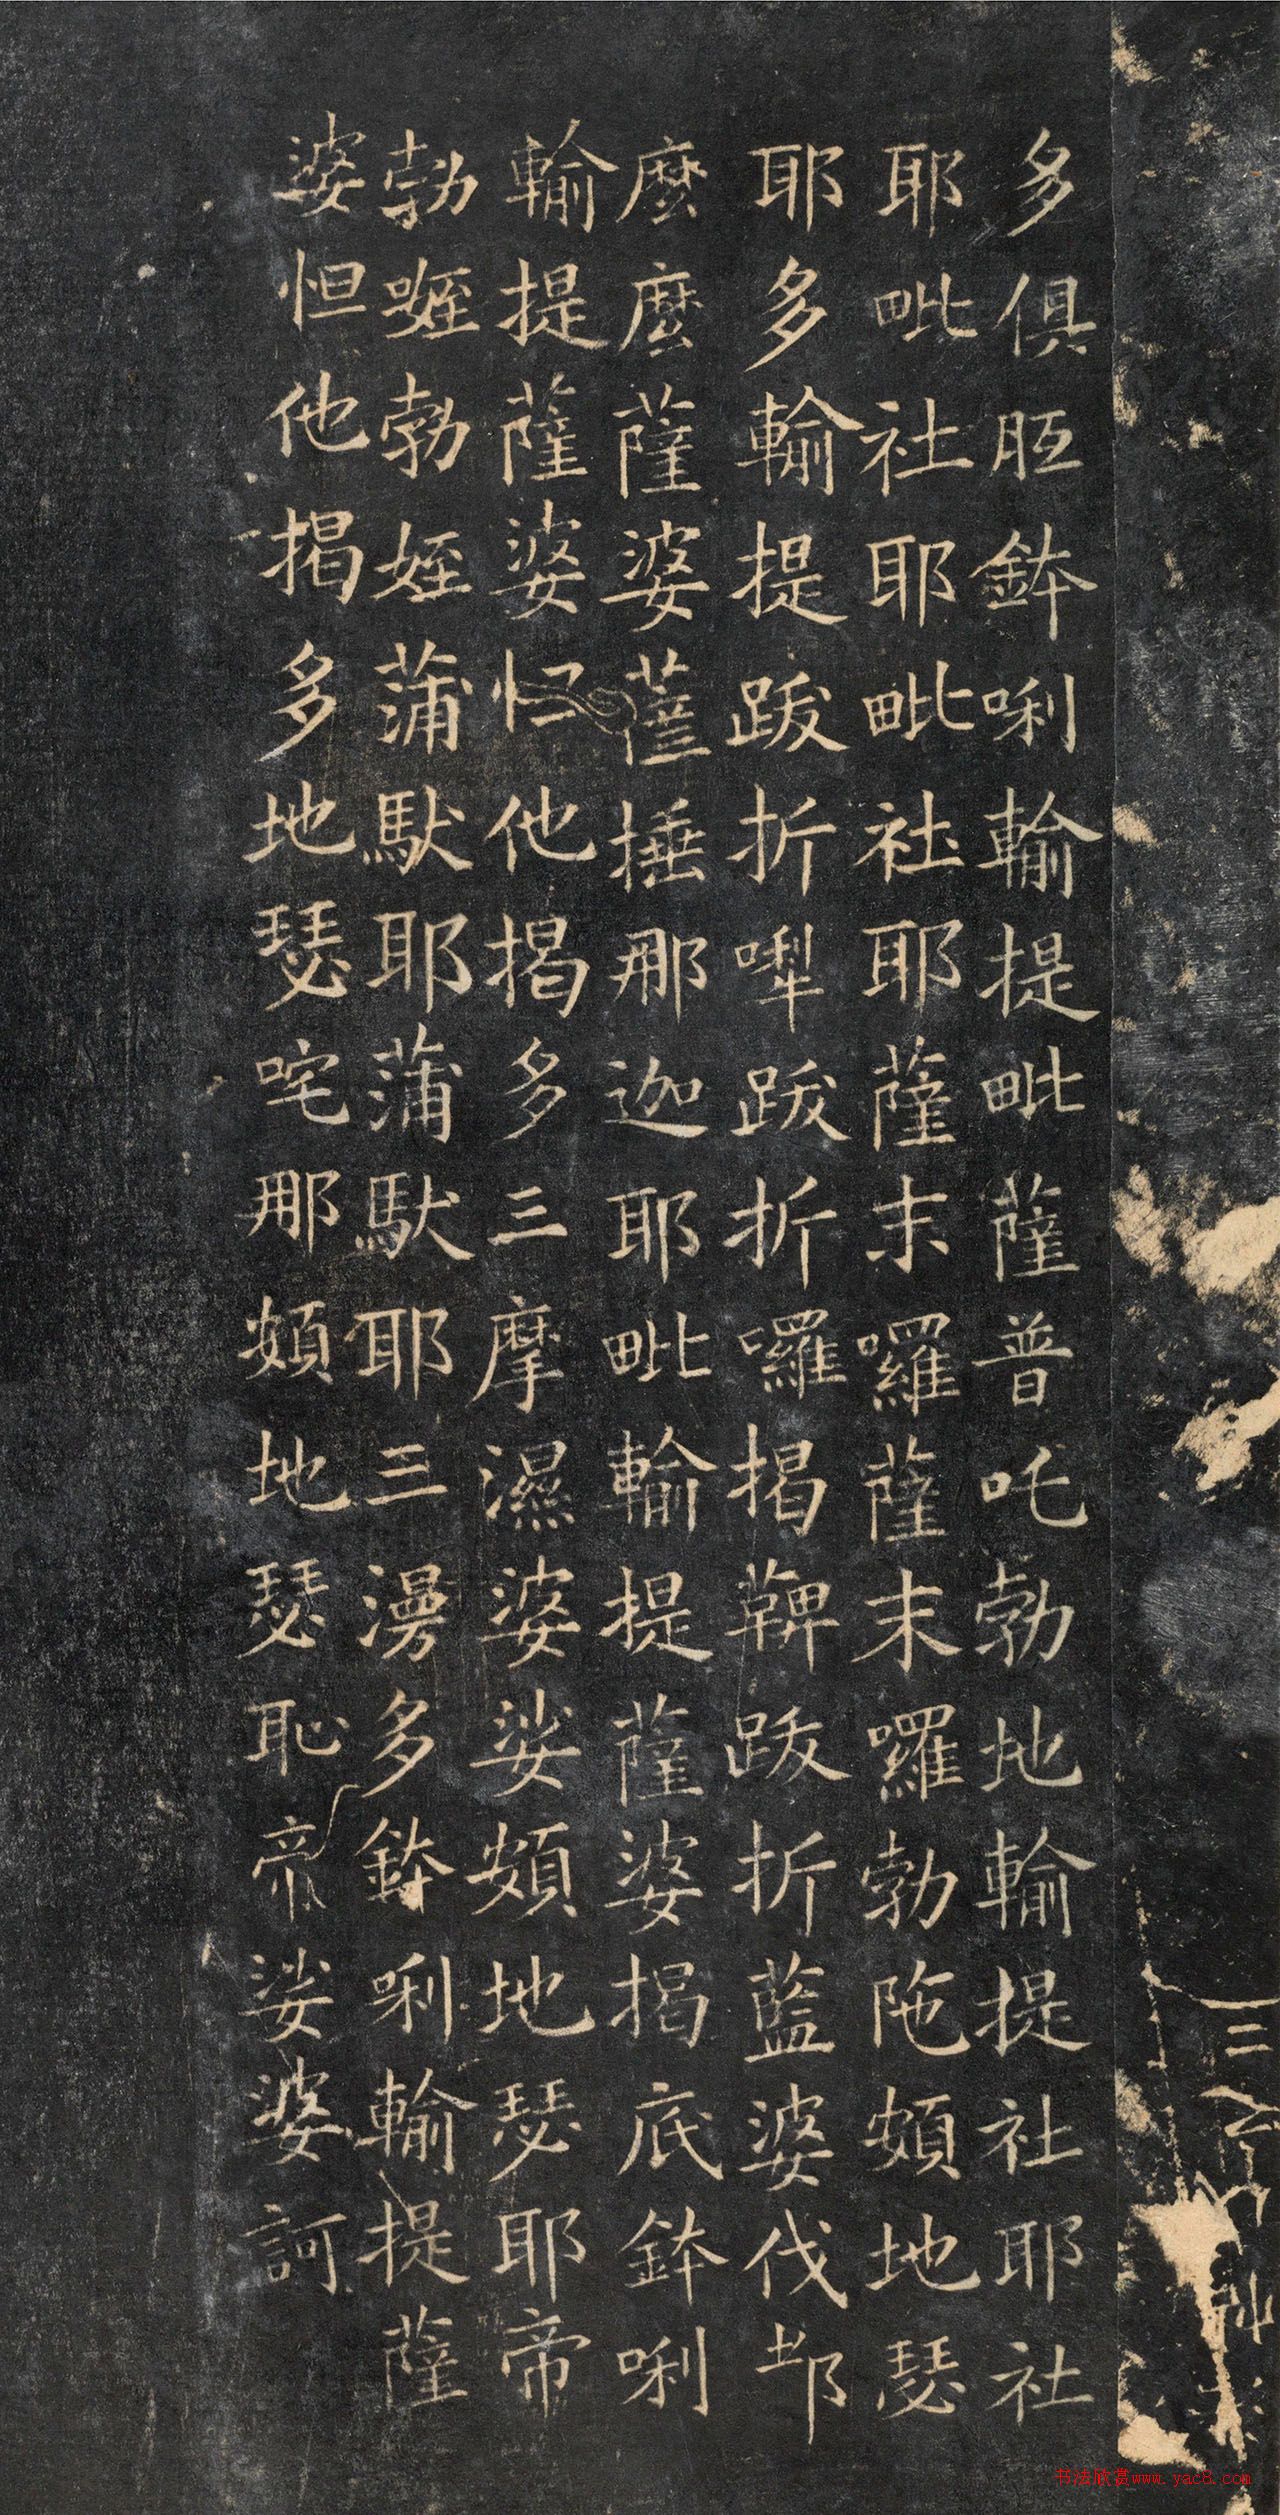 多俱胝鉢唎輸提毗薩普吒勃地輸提社耶社
耶毗社耶毗社耶薩末囉薩末囉勃陁頞地瑟
耶多輸提跋折㘑跋折囉揭鞞跋折藍婆伐
麼麼薩婆薩捶那迦耶毗輸提薩婆揭底鉢唎
輸提薩婆怛他揭多三摩濕婆娑頞地瑟耶帝
勃姪蒲馱耶蒲馱耶三漫多鉢唎輸提薩
婆怛他揭多地瑟咤那頞地瑟恥帝娑婆訶
书法欣赏www.yac8.com